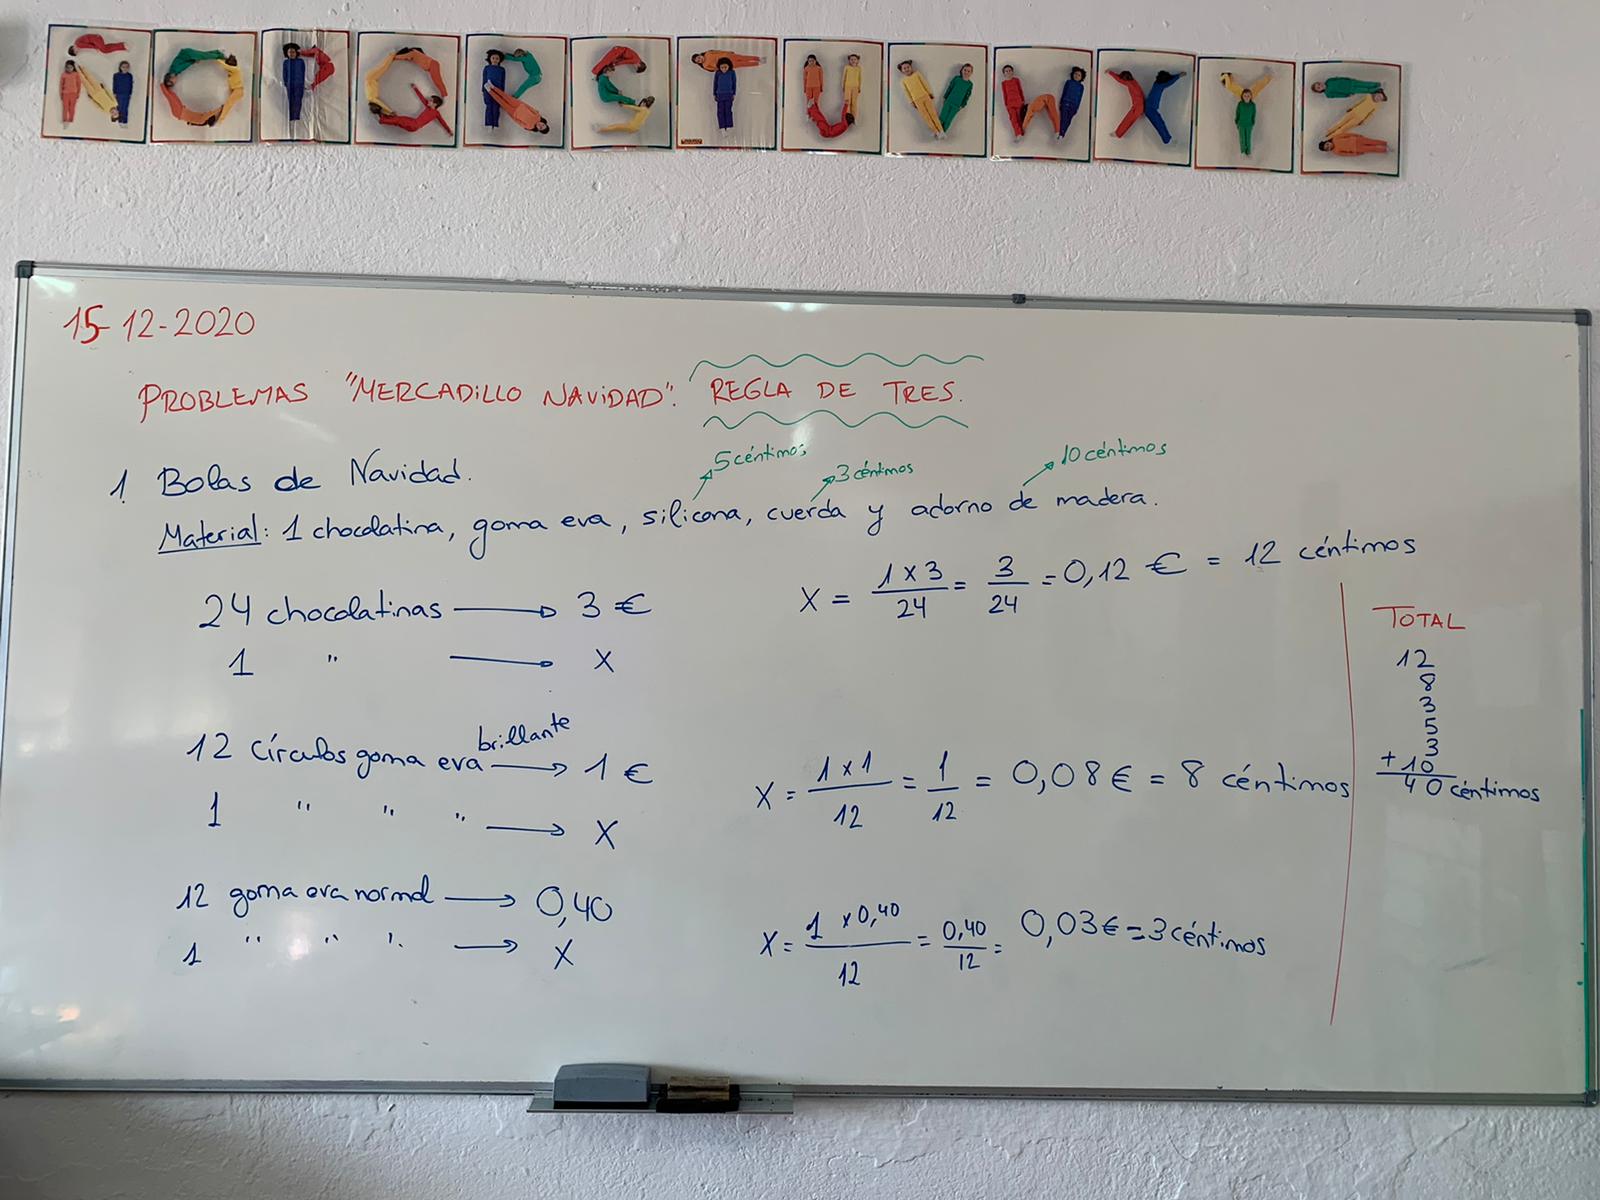 N O P Q R S T U V W X Y Z
15-12-2020
PROBLEMAS "MERCADILLO NAVIDAD": REGLA DE TRES.
1. Bolas de Navidad.
5 céntimos
3 céntimos
10 céntimos
Material: 1 chocolatina, goma eva, silicona, cuerda y adorno de madera.
24 chocolatinas → 3 €
1 " → X
X = 1 x 3 / 24 = 3 / 24 = 0,12 € = 12 céntimos
12 círculos goma eva brillante → 1 €
1 " " " → X
X = 1 x 1 / 12 = 1 / 12 = 0,08 € = 8 céntimos
12 goma eva normal → 0,40
1 " " " → X
X = 1 x 0,40 / 12 = 0,40 / 12 = 0,03 € = 3 céntimos
TOTAL
12
8
3
5
3
+ 10
40 céntimos